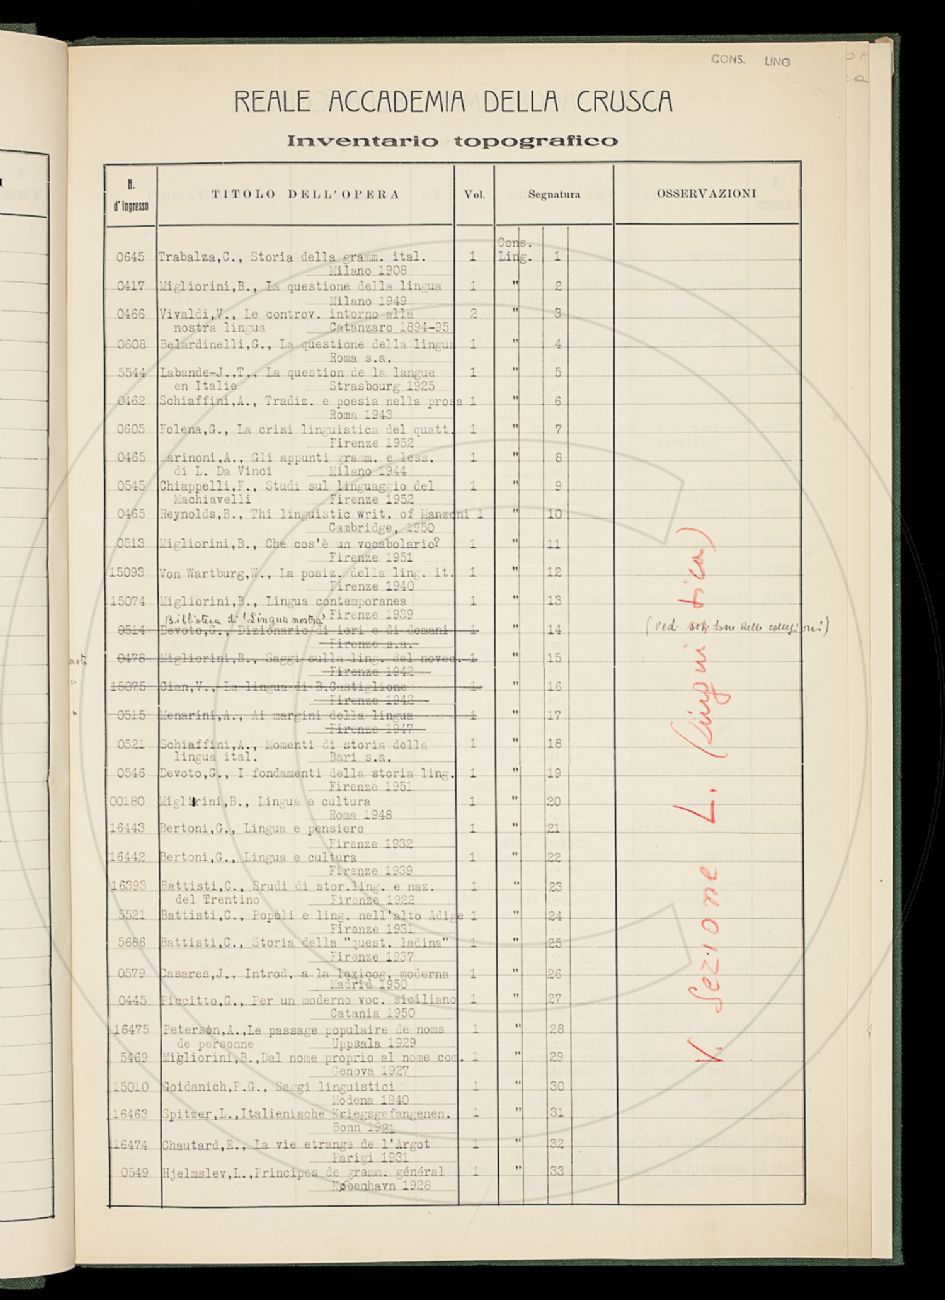 CONS. LING
REALE ACCADEMIA DELLA CRUSCA
Inventario topografico
N. d'Ingresso TITOLO DELL'OPERA Vol. Segnatura OSSERVAZIONI
Cons.
0645 Trabalza,C., Storia della gramm. ital. 1 Ling. 1
Milano 1908
0417 Migliorini,B., La questione della lingua 1 " 2
Milano 1949
0466 Vivaldi,V., Le controv. intorno alla 2 " 3
nostra lingua Catanzaro 1894-95
0608 Belardinelli,G., La questione della lingua 1 " 4
Roma s.a.
5544 Labande-J.,T., La question de la langue 1 " 5
en Italie Strasbourg 1925
0462 Schiaffini,A., Tradiz. e poesia nella prosa 1 " 6
Roma 1943
0605 Folena,G., La crisi linguistica del quatt. 1 " 7
Firenze 1952
0465 Marinoni,A., Gli appunti gramm. e less. 1 " 8
di L. Da Vinci Milano 1944
0545 Chiappelli,F., Studi sul linguaggio del 1 " 9
Machiavelli Firenze 1952
0465 Reynolds,B., Thi linguistic writ. of Manzoni 1 " 10
Cambridge, 1950
0513 Migliorini,B., Che cos'è un vocabolario? 1 " 11
Firenze 1951
15093 Von Wartburg,W., La posiz. della ling. it. 1 " 12
Firenze 1940
15074 Migliorini,B., Lingua contemporanea 1 " 13
Biblioteca di "Lingua nostra" Firenze 1939
0514 Devoto,G., Dizionario di ieri e di domani 1 " 14 (Ved. nelle collezioni)
Firenze s.a.
0478 Migliorini,B., Saggi sulla ling. del novec. 1 " 15
Firenze 1942
15075 Cian,V., La lingua di B.Castiglione 1 " 16
Firenze 1942
0515 Menarini,A., Ai margini della lingua 1 " 17
Firenze 1947
0521 Schiaffini,A., Momenti di storia della 1 " 18
lingua ital. Bari s.a.
0546 Devoto,G., I fondamenti della storia ling. 1 " 19
Firenze 1951
00180 Miglirini,B., Lingua e cultura 1 " 20
Roma 1948
16443 Bertoni,G., Lingua e pensiero 1 " 21
Firenze 1932
16442 Bertoni,G., Lingua e cultura 1 " 22
Firenze 1939
16393 Battisti,C., Srudi di stor.ling. e naz. 1 " 23
del Trentino Firenze 1922
5521 Battisti,C., Popoli e ling. nell'alto Adige 1 " 24
Firenze 1931
5686 Battisti,C., Storia della "quest. ladina" 1 " 25
Firenze 1937
0579 Casares,J., Introd. a la lexicog. moderna 1 " 26
Madrid 1950
0445 Piccitto,G., Per un moderno voc. siciliano 1 " 27
Catania 1950
16475 Peterson,A.,Le passage populaire de noms 1 " 28
de personne Uppsala 1929
5469 Migliorini,B.,Dal nome proprio al nome com. 1 " 29
Genova 1927
15010 Goidanich,P.G., Saggi linguistici 1 " 30
Modena 1940
16463 Spitzer,L.,Italienische Kriegsgefangenen. 1 " 31
Bonn 1921
16474 Chautard,E., La vie etrange de l'Argot 1 " 32
Parigi 1931
0549 Hjelmslev,L.,Principes de gramm. général 1 " 33
København 1928
V. Sezione L. (Linguistica)